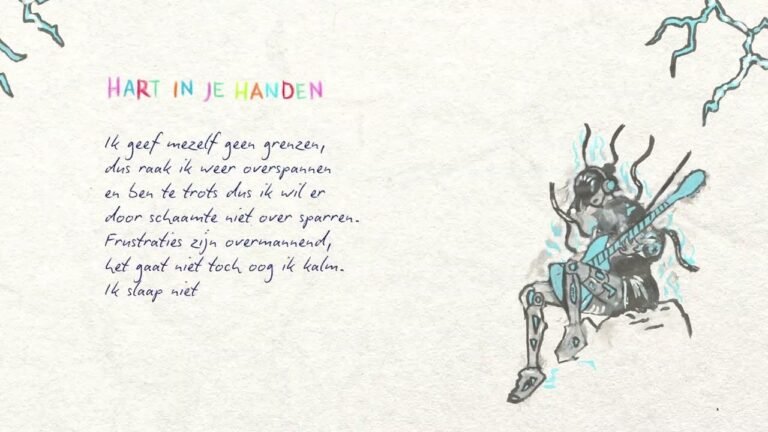 HART IN JE HANDEN
Ik geef mezelf geen grenzen,
dus raak ik weer overspannen
en ben te trots dus ik wil er
door schaamte niet over sparren.
Frustraties zijn overmannend,
het gaat niet toch oog ik kalm.
Ik slaap niet